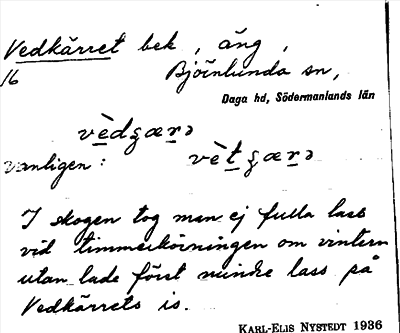 Vedkärret bek, äng,
16 Björnlunda sn,
Daga hd, Södermanlands län
vèdȿærə
vanligen: vètȿærə
I skogen tog man ej fulla lass
vid timmerkörningen om vintern
utan lade först mindre lass på
Vedkärrets is.
KARL-ELIS NYSTEDT 1936